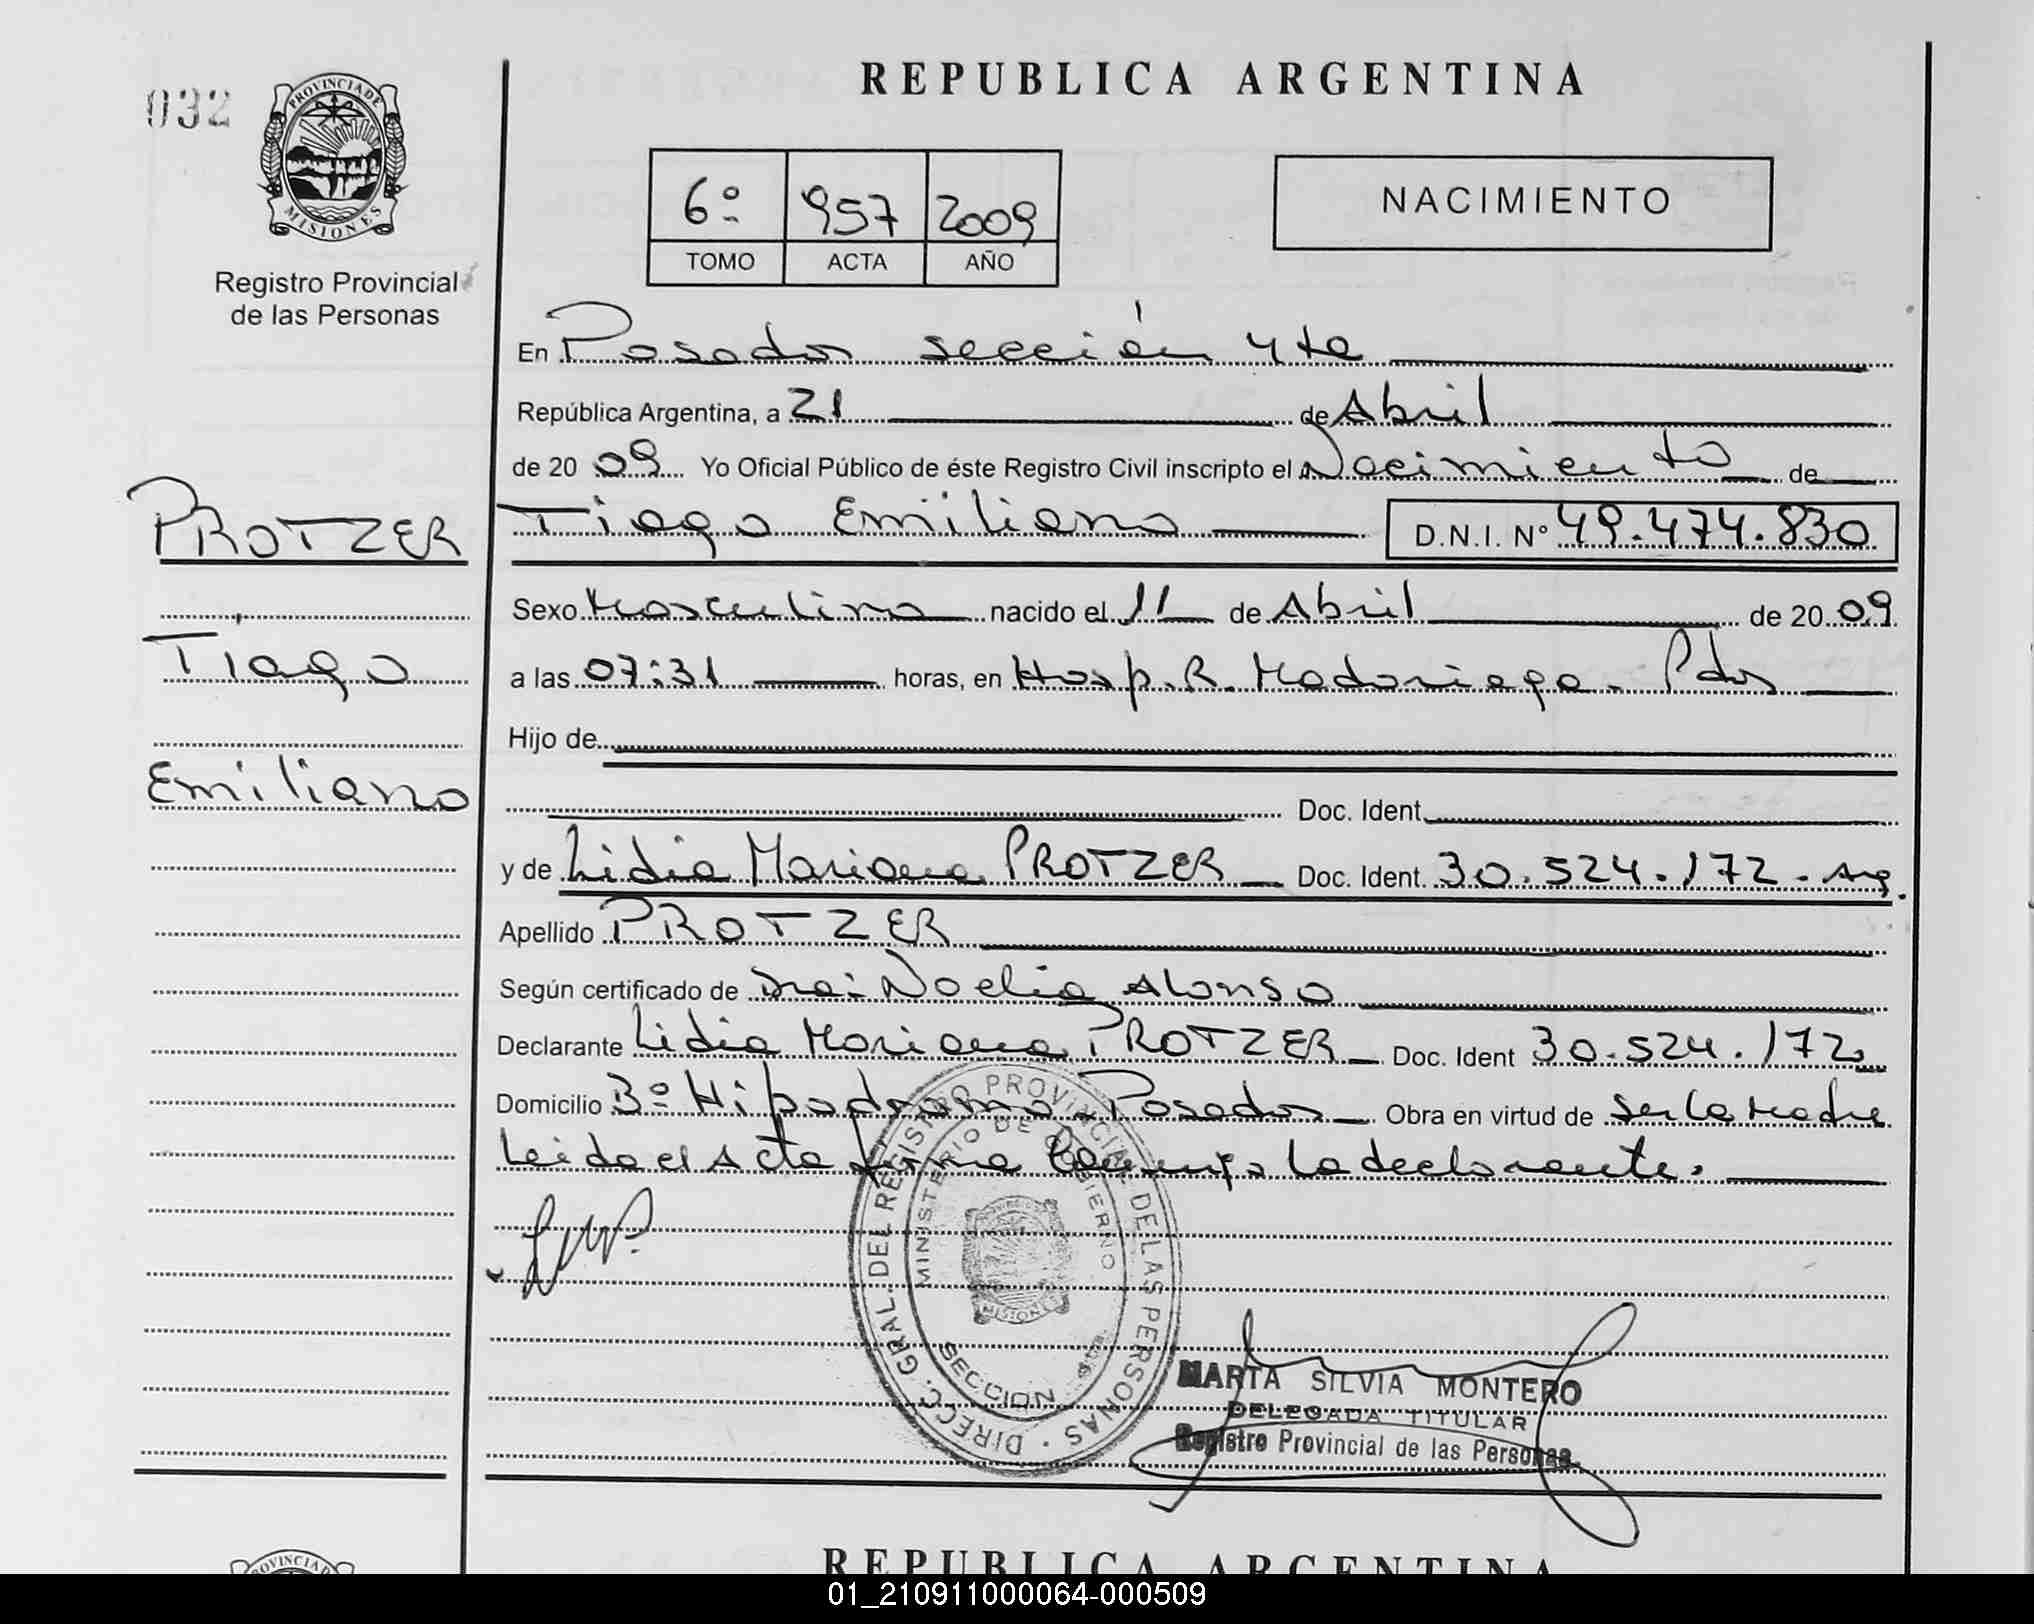 032
PROVINCIA DE
MISIONES
Registro Provincial
de las Personas
REPUBLICA ARGENTINA
6º 957 2009
TOMO ACTA AÑO
NACIMIENTO
En Posadas sección 4ta
República Argentina, a 21 de Abril
de 2009 Yo Oficial Público de éste Registro Civil inscripto el Nacimiento de
Tiago Emiliano D.N.I. Nº 49.474.830
Sexo Masculino nacido el 11 de Abril de 2009
a las 07:31 horas, en Hosp. R. Madariaga. Pdas
Hijo de
Doc. Ident.
y de Lidia Mariana PROTZER Doc. Ident. 30.524.172. Arg.
Apellido PROTZER
Según certificado de Dra: Noelia Alonso
Declarante Lidia Mariana PROTZER Doc. Ident 30.524.172
Domicilio Bº Hipodromo - Posadas Obra en virtud de ser la Madre
Leida el Acta firma conmigo la declarante.
PROTZER
Tiago
Emiliano
DIRECC. GRAL. DEL REGISTRO PROVINCIAL DE LAS PERSONAS
MINISTERIO DE GOBIERNO
SECCION 4ta.
MISIONES
MARTA SILVIA MONTERO
DELEGADA TITULAR
Registro Provincial de las Personas
REPUBLICA ARGENTINA
01_210911000064-000509